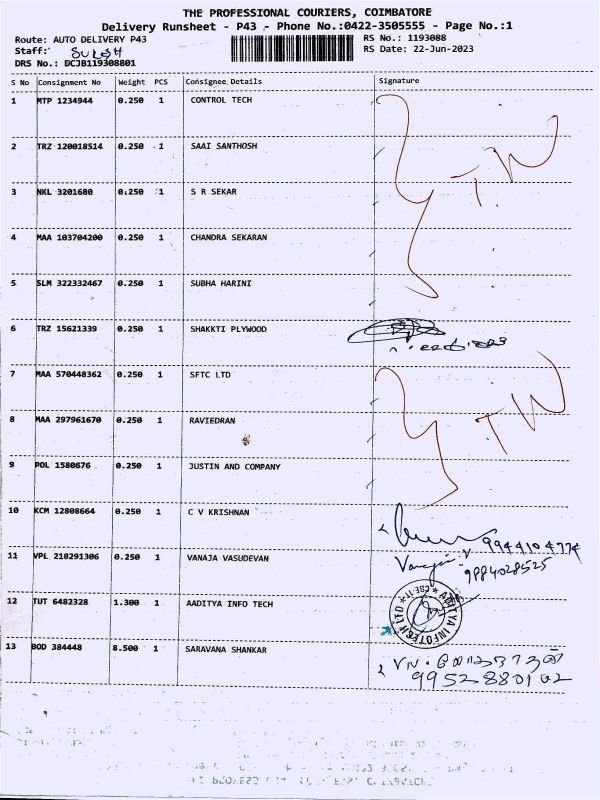 THE PROFESSIONAL COURIERS, COIMBATORE
Delivery Runsheet - P43 - Phone No.:0422-3505555 - Page No.:1
Route: AUTO DELIVERY P43 RS No.: 1193088
Staff: RS Date: 22-Jun-2023
DRS No.: DCJB119308801
S No Consignment No Weight PCS Consignee Details Signature
1 MTP 1234944 0.250 1 CONTROL TECH
2 TRZ 120018514 0.250 1 SAAI SANTHOSH
3 NKL 3201680 0.250 1 S R SEKAR
4 MAA 103704200 0.250 1 CHANDRA SEKARAN
5 SLM 322332467 0.250 1 SUBHA HARINI
6 TRZ 15621339 0.250 1 SHAKKTI PLYWOOD
7 MAA 570448362 0.250 1 SFTC LTD
8 MAA 297961670 0.250 1 RAVIEDRAN
9 POL 1580676 0.250 1 JUSTIN AND COMPANY
10 KCM 12808664 0.250 1 C V KRISHNAN
9944104774
11 VPL 218291306 0.250 1 VANAJA VASUDEVAN
9884028525
12 TUT 6482328 1.300 1 AADITYA INFO TECH
ADITYA INFOTECH LTD
13 BOD 384448 8.500 1 SARAVANA SHANKAR
9952880102